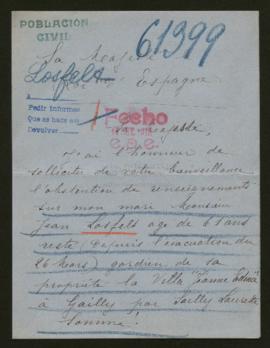 POBLACIÓN
CIVIL
61399
Sa
Losfelt
Espagne
A
Pedir informes
Que se hace en
Devolver
Fecho
J'ai l'honneur de
solliciter de votre bienveillance
l'obtention de renseignements
sur mon mari Monsieur
Jean Losfelt age de 61 ans
resté (Depuis l'évacuation du
26 Mars) gardien de sa
propriété la Villa "Jeanne
à Gailly par Sailly Laurette
Somme.